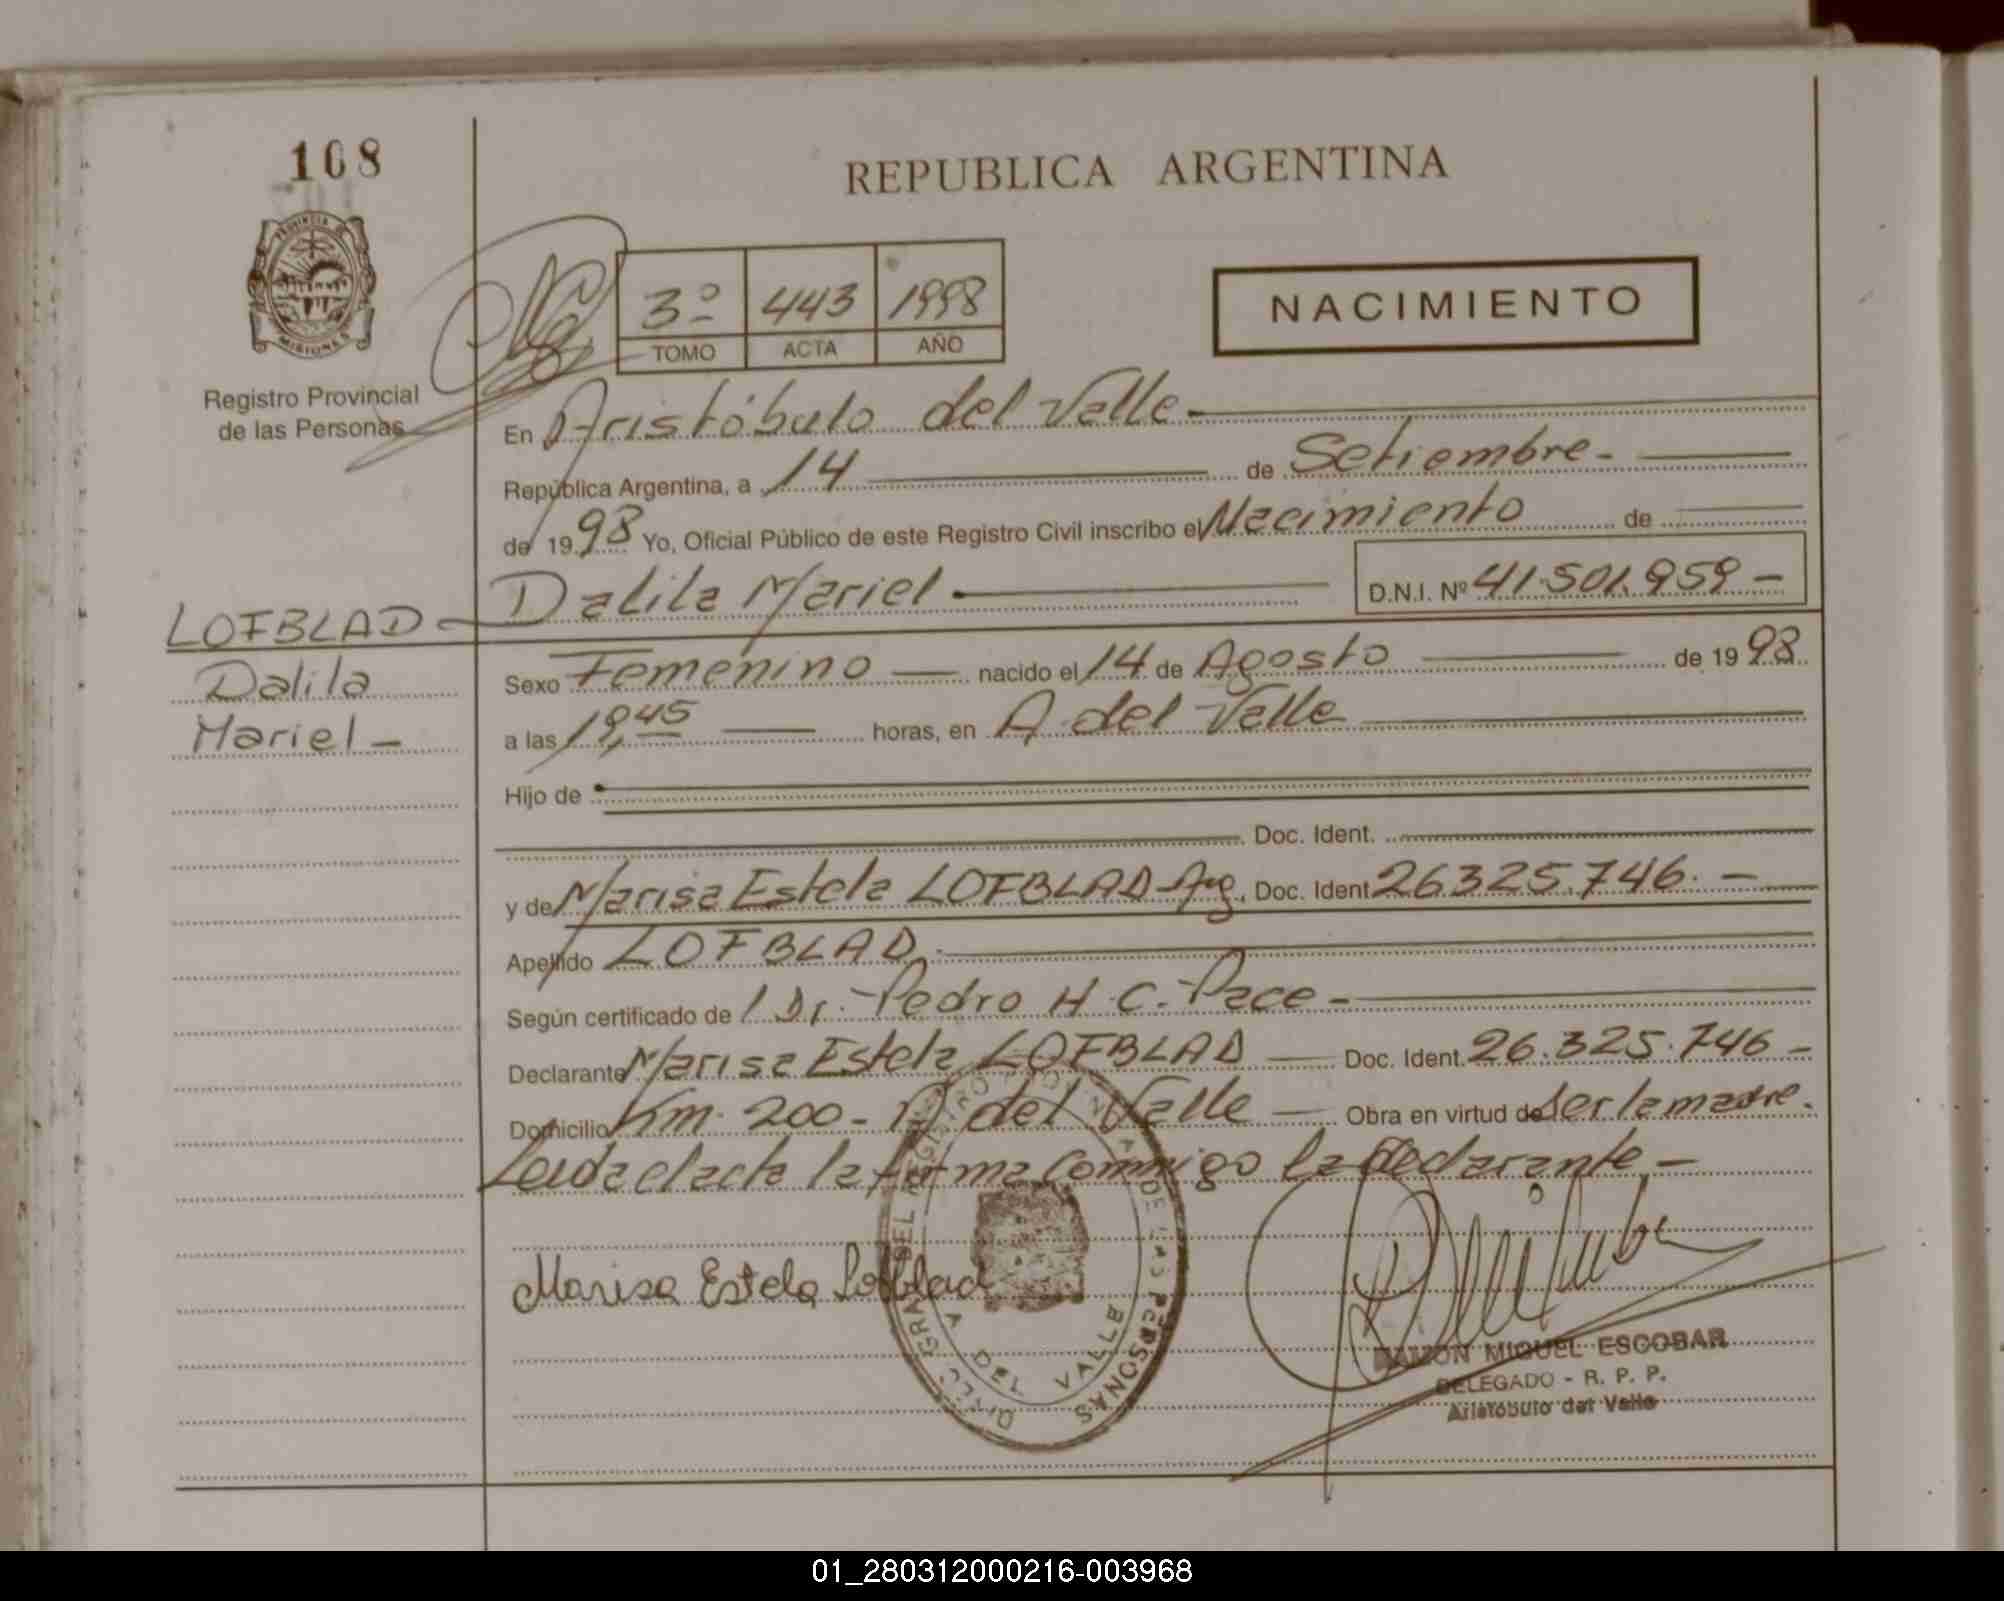 108
REPUBLICA ARGENTINA
PROVINCIA DE
MISIONES
3º 443 1998
TOMO ACTA AÑO
NACIMIENTO
Registro Provincial
de las Personas
En Aristóbulo del Valle
República Argentina, a 14 de Setiembre.-
de 1998 Yo, Oficial Público de este Registro Civil inscribo el Nacimiento de
Dalila Mariel D.N.I. Nº 41.501.959-
LOFBLAD
Dalila
Mariel-
Sexo Femenino nacido el 14 de Agosto de 1998
a las 19,45 horas, en A. del Valle
Hijo de
Doc. Ident.
y de Marisa Estela LOFBLAD Arg. Doc. Ident 26325.746.-
Apellido LOFBLAD
Según certificado de Dr. Pedro H.C. Pace-
Declarante Marisa Estela LOFBLAD Doc. Ident. 26.325.746-
Domicilio Km. 200- A del Valle Obra en virtud de ser la madre.
Leida el acta la firma conmigo la declarante-
Marisa Estela Lofblad
A DEL VALLE
RAMON MIGUEL ESCOBAR
DELEGADO - R. P. P.
Aristobulo del Valle
01_280312000216-003968